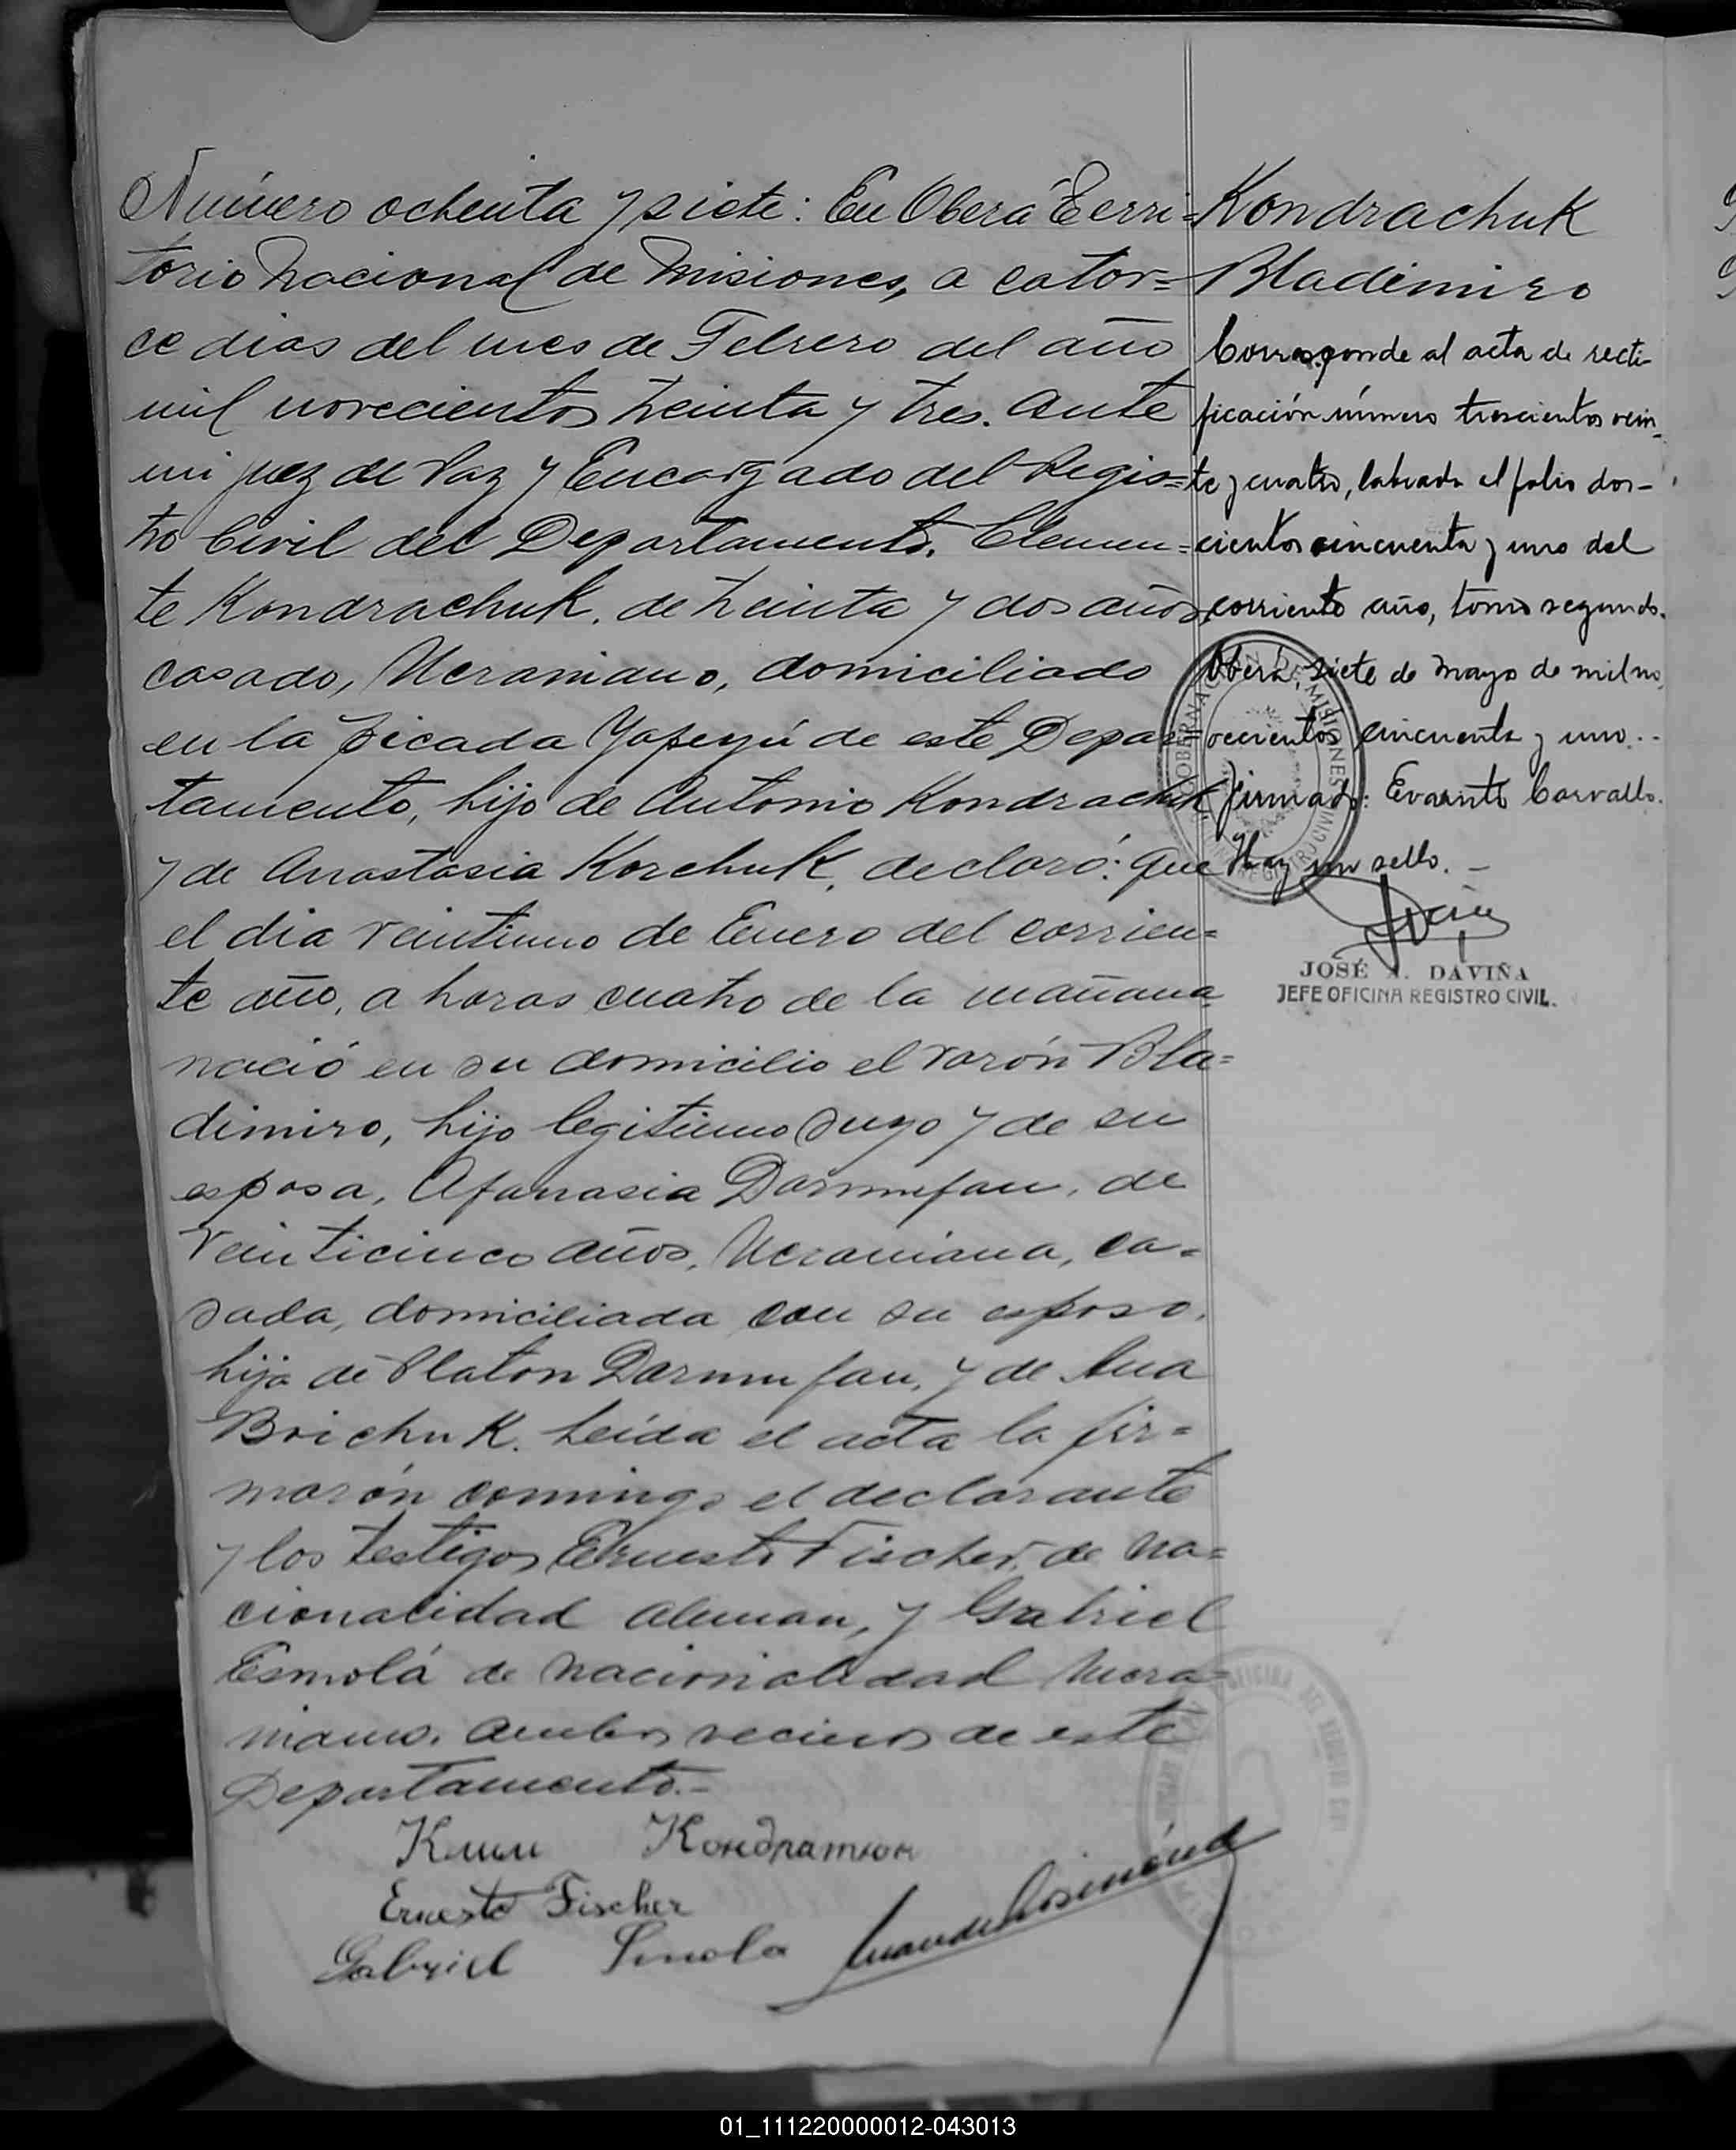 Número ochenta y siete: En Oberá Terri=
torio Nacional de Misiones, a cator=
ce dias del mes de Febrero del año
mil novecientos treinta y tres. Ante
mi juez de Paz y Encargado del Regis=
tro Civil del Departamento. Clemen=
te Kondrachuk, de treinta y dos años,
casado, Ucraniano, domiciliado
en la picada Yapeyú de este Depar=
tamento, hijo de Antonio Kondrachuk
y de Anastasia Korchuk, declaró: que
el dia veintiuno de Enero del corrien=
te año, a horas cuatro de la mañana
nació en su domicilio el varón Bla=
dimiro, hijo legitimo suyo y de su
esposa, Afanasia Darmufan, de
veinticinco años, Ucraniana, ca=
sada, domiciliada con su esposo,
hija de Platon Darmufan, y de Ana
Brichuk. Leida el acta la fir=
marón conmingo el declarante
y los testigos Ernesto Fischer, de na=
cionalidad aleman, y Gabriel
Esmolá de nacionalidad Ucra=
niano. Ambos vecinos de este
Departamento.-
Ernesto Fischer
Gabriel Smola
Kondrachuk
Bladimiro
Corresponde al acta de recti-
ficación número trescientos vein-
te y cuatro, labrada al folio dos-
cientos cincuenta y uno del
corriente año, tomo segundo.
Oberá, siete de mayo de mil no
vecientos cincuenta y uno.-
Firmado: Evaristo Carvallo.
Hay un sello.-
JOSÉ A. DAVIÑA
JEFE OFICINA REGISTRO CIVIL.
01_111220000012-043013